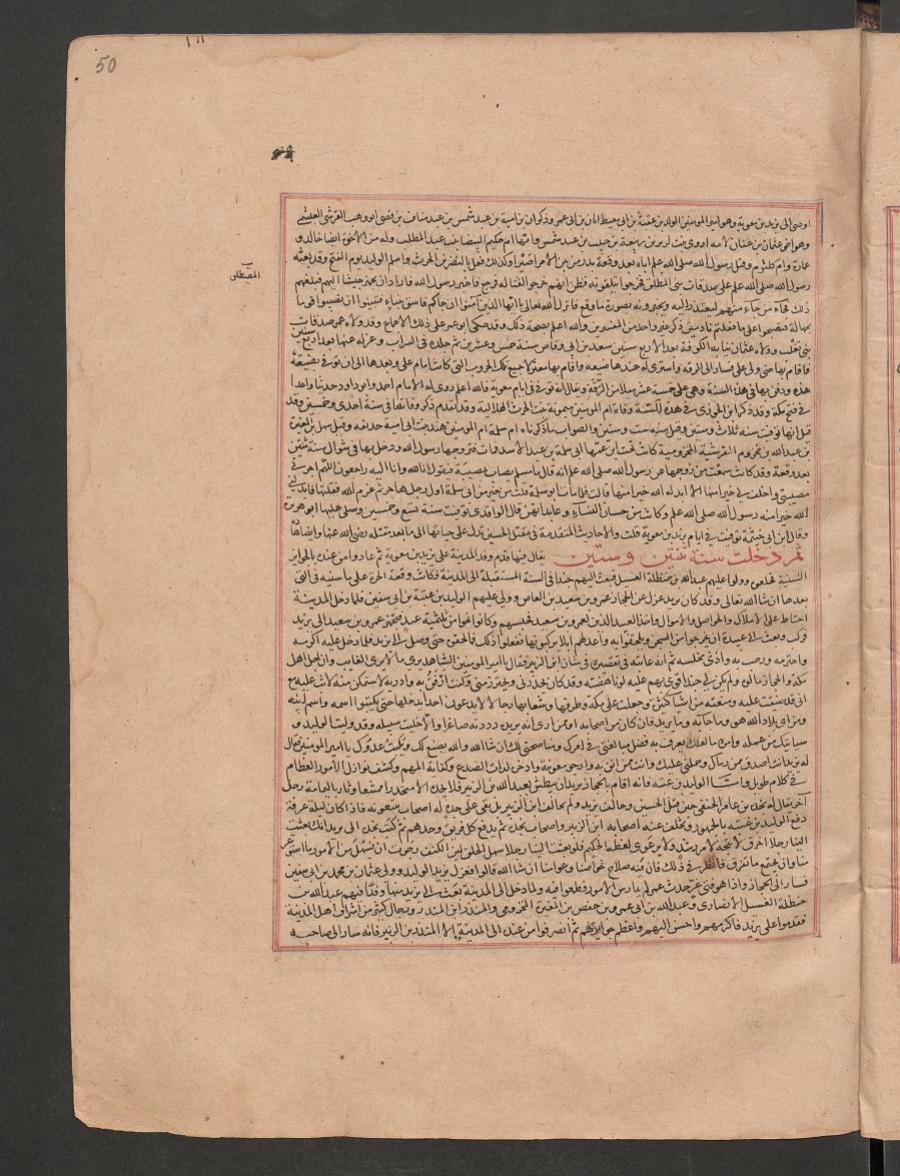 50
المصطلق
اوصى الى يزيد بن معوية وهو امير المومنين الوليد بن عقبة بن ابى معيط ابان بن ابى عمرو ذكوان بن امية بن عبد شمس بن عبد مناف بن قصى ابو وهب القرشى العبشمى
وهو اخو عثمان بن عفان لامه اروى بنت كريز بن ربيعة بن حبيب بن عبد شمس وامها ام حكيم البيضا بنت عبد المطلب وله من الاخوة ايضا خالد و
عمارة وام كلثوم وقتل رسول الله صلى الله علم اباه بعد وقعة بدر من بين الاسرا صبرا وكذلك فعل بالنضر بن الحرث واسلم الوليد يوم الفتح وقد بعثه
رسول الله صلى الله علم على صدقات بنى المطلق فخرجوا يتلقونه فظن انهم خرجوا لقتاله فرجع فاخبر رسول الله فاراد ان يجهز جيشا اليهم فبلغهم
ذلك فجآء من جآء منهم ليعتذر اليه ويخبرونه بصورة ما وقع فانزل الله تعالى ياايها الذين آمنوا ان جاكم فاسق بنباء فتبينوا ان تصيبوا قوما
بجهالة فتصبحوا على ما فعلتم نادمين ذكره غير واحد من المفسرين والله اعلم بصحة ذلك وقد حكى ابو عمر على ذلك الاجماع وقد ولاه عمر صدقات
بنى تغلب وولاه عثمان نيابة الكوفة بعد سعد بن ابى وقاص سنة خمس وعشرين ثم جلده فى الشراب وعزله عنها بعد اربع سنين
فاقام بها حتى
هذه ودفن بها فى هذه السنة وهى على خمسة عشر ميلا من الرقة ويقال انه توفى فى ايام معوية فالله اعلم روى له الامام احمد وابو داود حديثا واحدا
فى فتح مكة وقد ذكر ابن الجوزى فى هذه السنة وفاة ام المومنين ميمونة بنت الحرث الهلالية وقد تقدم ذكر وفاتها فى سنة احدى وخمسين وقد
قيل انها توفيت سنة ثلاث وستين وقيل سنة ست وستين والصواب ما ذكرناه ام سلمة ام المومنين هند بنت ابى امية حذيفة وقيل سهل بن المغيرة
بن عبد الله بن مخزوم القرشية المخزومية كانت تحت ابن عمها ابى سلمة بن عبد الاسد فمات فتزوجها رسول الله ودخل بها فى شوال سنة ثنتين
بعد وقعة وقد كانت سمعت من زوجها عن رسول الله صلى الله علم انه قال ما مسلم يصاب بمصيبة فيقول انا لله وانا اليه راجعون اللهم اجرنى فى
مصيبتى واخلف لى خيرا منها الا ابدله الله خيرا منها قالت فلما مات ابو سلمة قلت من خير من ابى سلمة اول رجل هاجر ثم عزم الله فقلتها فابدلنى
الله خيرا منه رسول الله صلى الله علم وكانت من حسان النسآء وعابداتهن قال الواقدى توفيت سنة تسع وخمسين وصلى عليها ابو هريرة
وقال ابن ابى خيثمة توفيت فى ايام يزيد بن معوية قلت والاحاديث المتقدمة فى مقتل الحسين تدل على حياتها الى ما بعد مقتله رضى الله عنها وارضاها
ثم دخلت سنة ثنتين وستين يقال فيها قدم وفد المدينة على يزيد بن معوية ثم عادوا من عنده بالجوايز
السنية فخلعوه وولوا عليهم عبد الله بن حنظلة الغسيل فبعث اليهم جندا فى السنة المستقبلة الى المدينة فكانت وقعة الحرة على ما سنبينه فى التى
بعدها ان شا الله تعالى وقد كان يزيد عزل عن الحجاز عمرو بن سعيد بن العاص وولى عليهم الوليد بن عتبة بن ابى سفين فلما دخل المدينة
احتاط على الاملاك والحواصل والاموال واخذ العبيد الذين لعمرو بن سعيد فحبسهم وكانوا نحوا من ثلثمئة عبد فتجهز عمرو بن سعيد الى يزيد
فركب وبعث الى عبيده ان يخرجوا من السجن ويلحقوا به واعد لهم ابلا يركبونها ففعلوا ذلك فما لحقوه حتى وصل الى يزيد فلما دخل عليه اكرمه
واحترمه ورحب به وادنى مجلسه ثم انه عاتبه فى تقصيره فى شان ابن الزبير فقال يا امير المومنين الشاهد يرى ما لا يرى الغايب وان جل اهل
مكة والحجاز مالوا ولم يكن لى جند اقوى بهم عليه لو ناهضته وقد كان يحذرنى ويحترز منى وكنت ارفق به وداريه لاستمكن منه فاثب عليه مع
انى قد ضيقت عليه ومنعته من اشيا كثيرة وجعلت على مكة وطرقها وشعابها رجالا لا يدعون احدا يدخلها حتى يكتبوا اسمه واسم ابيه
ومن اى بلاد الله هو وما جآ به وما يريد فان كان من اصحابه او ممن ارى انه يريده رددته صاغرا والا خليت سبيله وقد وليت الوليد و
سياتيك من عمله وامره ما لعلك تعرف به فضل مبالغتى فى امرك ومناصحتى لك ان شا الله والله يصنع لك ويكبت عدوك يا امير المومنين فقال
له يزيد انت اصدق ممن رماك وحملنى عليك وانت ممن اثق به وارجو معونته وادخره لذات الصدع وكفاية المهم وكشف نوازل الامور العظام
فى كلام طويل واما الوليد بن عتبة فانه اقام بالحجاز يريد ان يبطش بعبد الله بن الزبير فلا يجده الا متحذرا ممتنعا وثار باليمامة رجل
آخر يقال له نجدة بن عامر الحنفى حين قتل الحسين وخالف يزيد ولم يخالف ابن الزبير بل بقى على حدة له اصحاب يتبعونه فاذا كان ليلة عرفة
دفع الوليد بن عتبة بالجمهور وتخلف عنه اصحاب ابن الزبير واصحاب نجدة ثم يدفع كل فريق وحدهم ثم كتب نجدة الى يزيد انك بعثت
الينا رجلا اخرق لا يتجه لامر رشد ولا يرعوى لعظة الحكيم فلو بعثت الينا رجلا سهل الخلق لين الكنف رجوت ان يسهل من الامور ما استوعر
منها وان يجتمع ما تفرق فانظر فى ذلك فان فيه صلاح خواصنا وعوامنا ان شا الله قالوا فعزل يزيد الوليد وولى عثمان بن محمد بن ابى سفين
فسار الى الحجاز واذا هو فتى غر حدث غمر لم يمارس الامور فطمعوا فيه ولما دخل الى المدينة بعث الى يزيد منها وفدا فيهم عبد الله بن
حنظلة الغسيل الانصارى وعبد الله بن ابى عمرو بن حفص بن المغيرة المخزومى والمنذر ابن الزبير ورجال كثير من اشراف اهل المدينة
فقدموا على يزيد فاكرمهم واحسن اليهم واعظم جوايزهم ثم انصرفوا من عنده الى المدينة الا المنذر بن الزبير فانه سار الى صاحبه